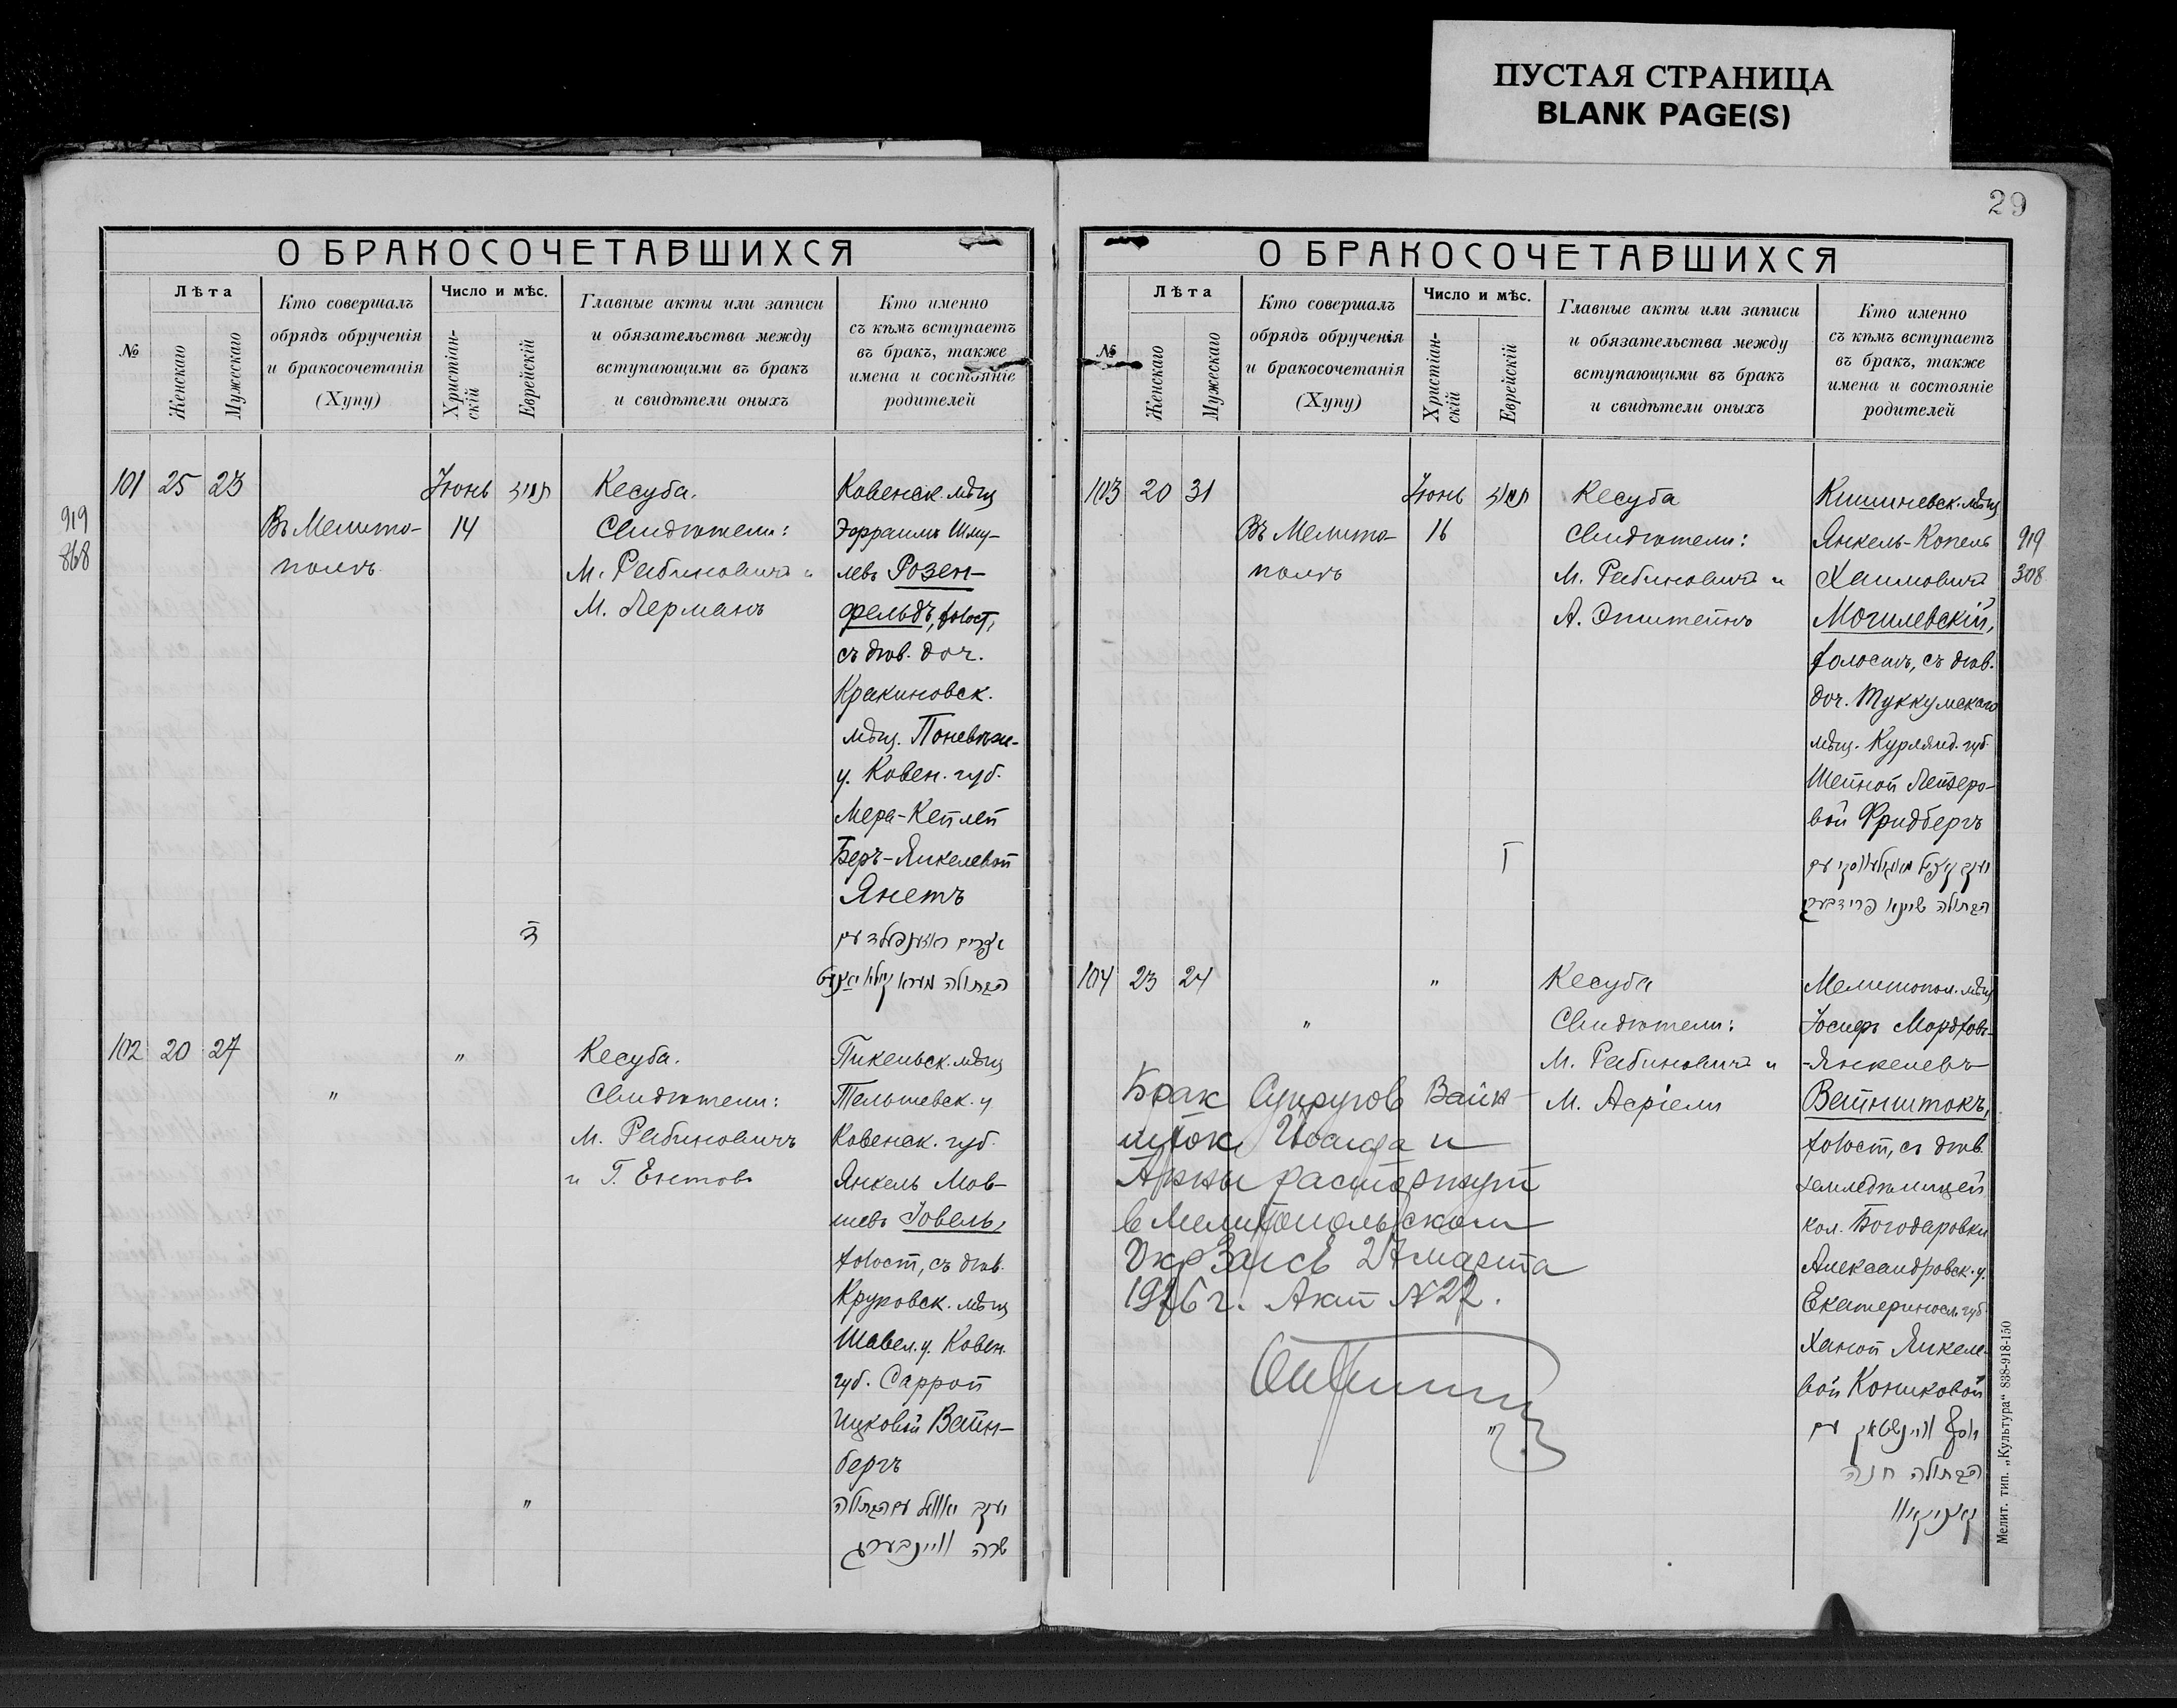 ПУСТАЯ СТРАНИЦА
BLANK PAGE(S)
29
О БРАКОСОЧЕТАВШИХСЯ
№
Лѣта
Женскаго
Мужескаго
Кто совершалъ
обрядъ обрученія
и бракосочетанія
(Хупу)
Число и мѣс.
Христіан-
скій
Еврейскій
Главные акты или записи
и обязательства между
вступающими въ бракъ
и свидѣтели оныхъ
Кто именно
съ кѣмъ вступаетъ
въ бракъ, также
имена и состояніе
родителей
919
868
101 25 23
Въ Мелито-
полѣ
Іюнь
14
Кесуба.
Свидѣтели:
М. Рабиновичъ и
М. Лерманъ
Ковенск. мѣщ
Эфраимъ Шму-
левъ Розен-
фельдъ, холост,
съ дѣв. доч.
Кракиновск.
мѣщ. Поневѣж-
у. Ковен. губ.
Мера-Кейлей
Беръ-Янкелевой
Янетъ
אפרים ראזענפעלד עם
הבתולה מערא קיילא יאנעט
102 20 27
"
"
Кесуба.
Свидѣтели:
М. Рабиновичъ
и Г. Ентовъ
Пикельск. мѣщ
Тельшевск. у
Ковенск. губ.
Янкель Мов-
шевъ Іовель,
холост, съ дѣв.
Круковск. мѣщ
Шавел. у. Ковен.
губ. Саррой
Ицковой Вайн-
бергъ
"
יעקב יאוועל עם הבתולה
שרה וויינבערג
О БРАКОСОЧЕТАВШИХСЯ
№
Лѣта
Женскаго
Мужескаго
Кто совершалъ
обрядъ обрученія
и бракосочетанія
(Хупу)
Число и мѣс.
Христіан-
скій
Еврейскій
Главные акты или записи
и обязательства между
вступающими въ бракъ
и свидѣтели оныхъ
Кто именно
съ кѣмъ вступаетъ
въ бракъ, также
имена и состояніе
родителей
103 20 31
Въ Мелито-
полѣ
Іюнь
16
Кесуба
Свидѣтели:
М. Рабиновичъ и
А. Эпштейнъ
Кишиневск. мѣщ
Янкель-Копель
Хаимовичъ
Могилевскій,
холостъ, съ дѣв.
доч. Туккумскаго
мѣщ. Курлянд. губ.
Шейной Лейзеро-
вой Фридбергъ
יעקב קאפיל מאגילעווסקי עם
הבתולה שיינא פרידבערג
919
308
104 23 24
"
"
Кесуба
Свидѣтели:
М. Рабиновичъ и
М. Асріели
Мелитопол. мѣщ
Іосифъ Мордхов-
-Янкелевъ
Вайнштокъ,
холост, съ дѣв.
землед
кол. Богодаровки
Александровск. у.
Екатеринос. губ.
Ханой Янкеле-
вой Кониковой
"
יוסף וויינשטאק עם
הבתולה חנה
קאניקאוו
Брак Супругов Вайн-
шток Иосифа и
Анны расторгнут
в Мелитопольском
ОкрЗагсе 27 марта
1926 г. Акт N 22.
Мелит. тип. „Культура“ 838-918-150